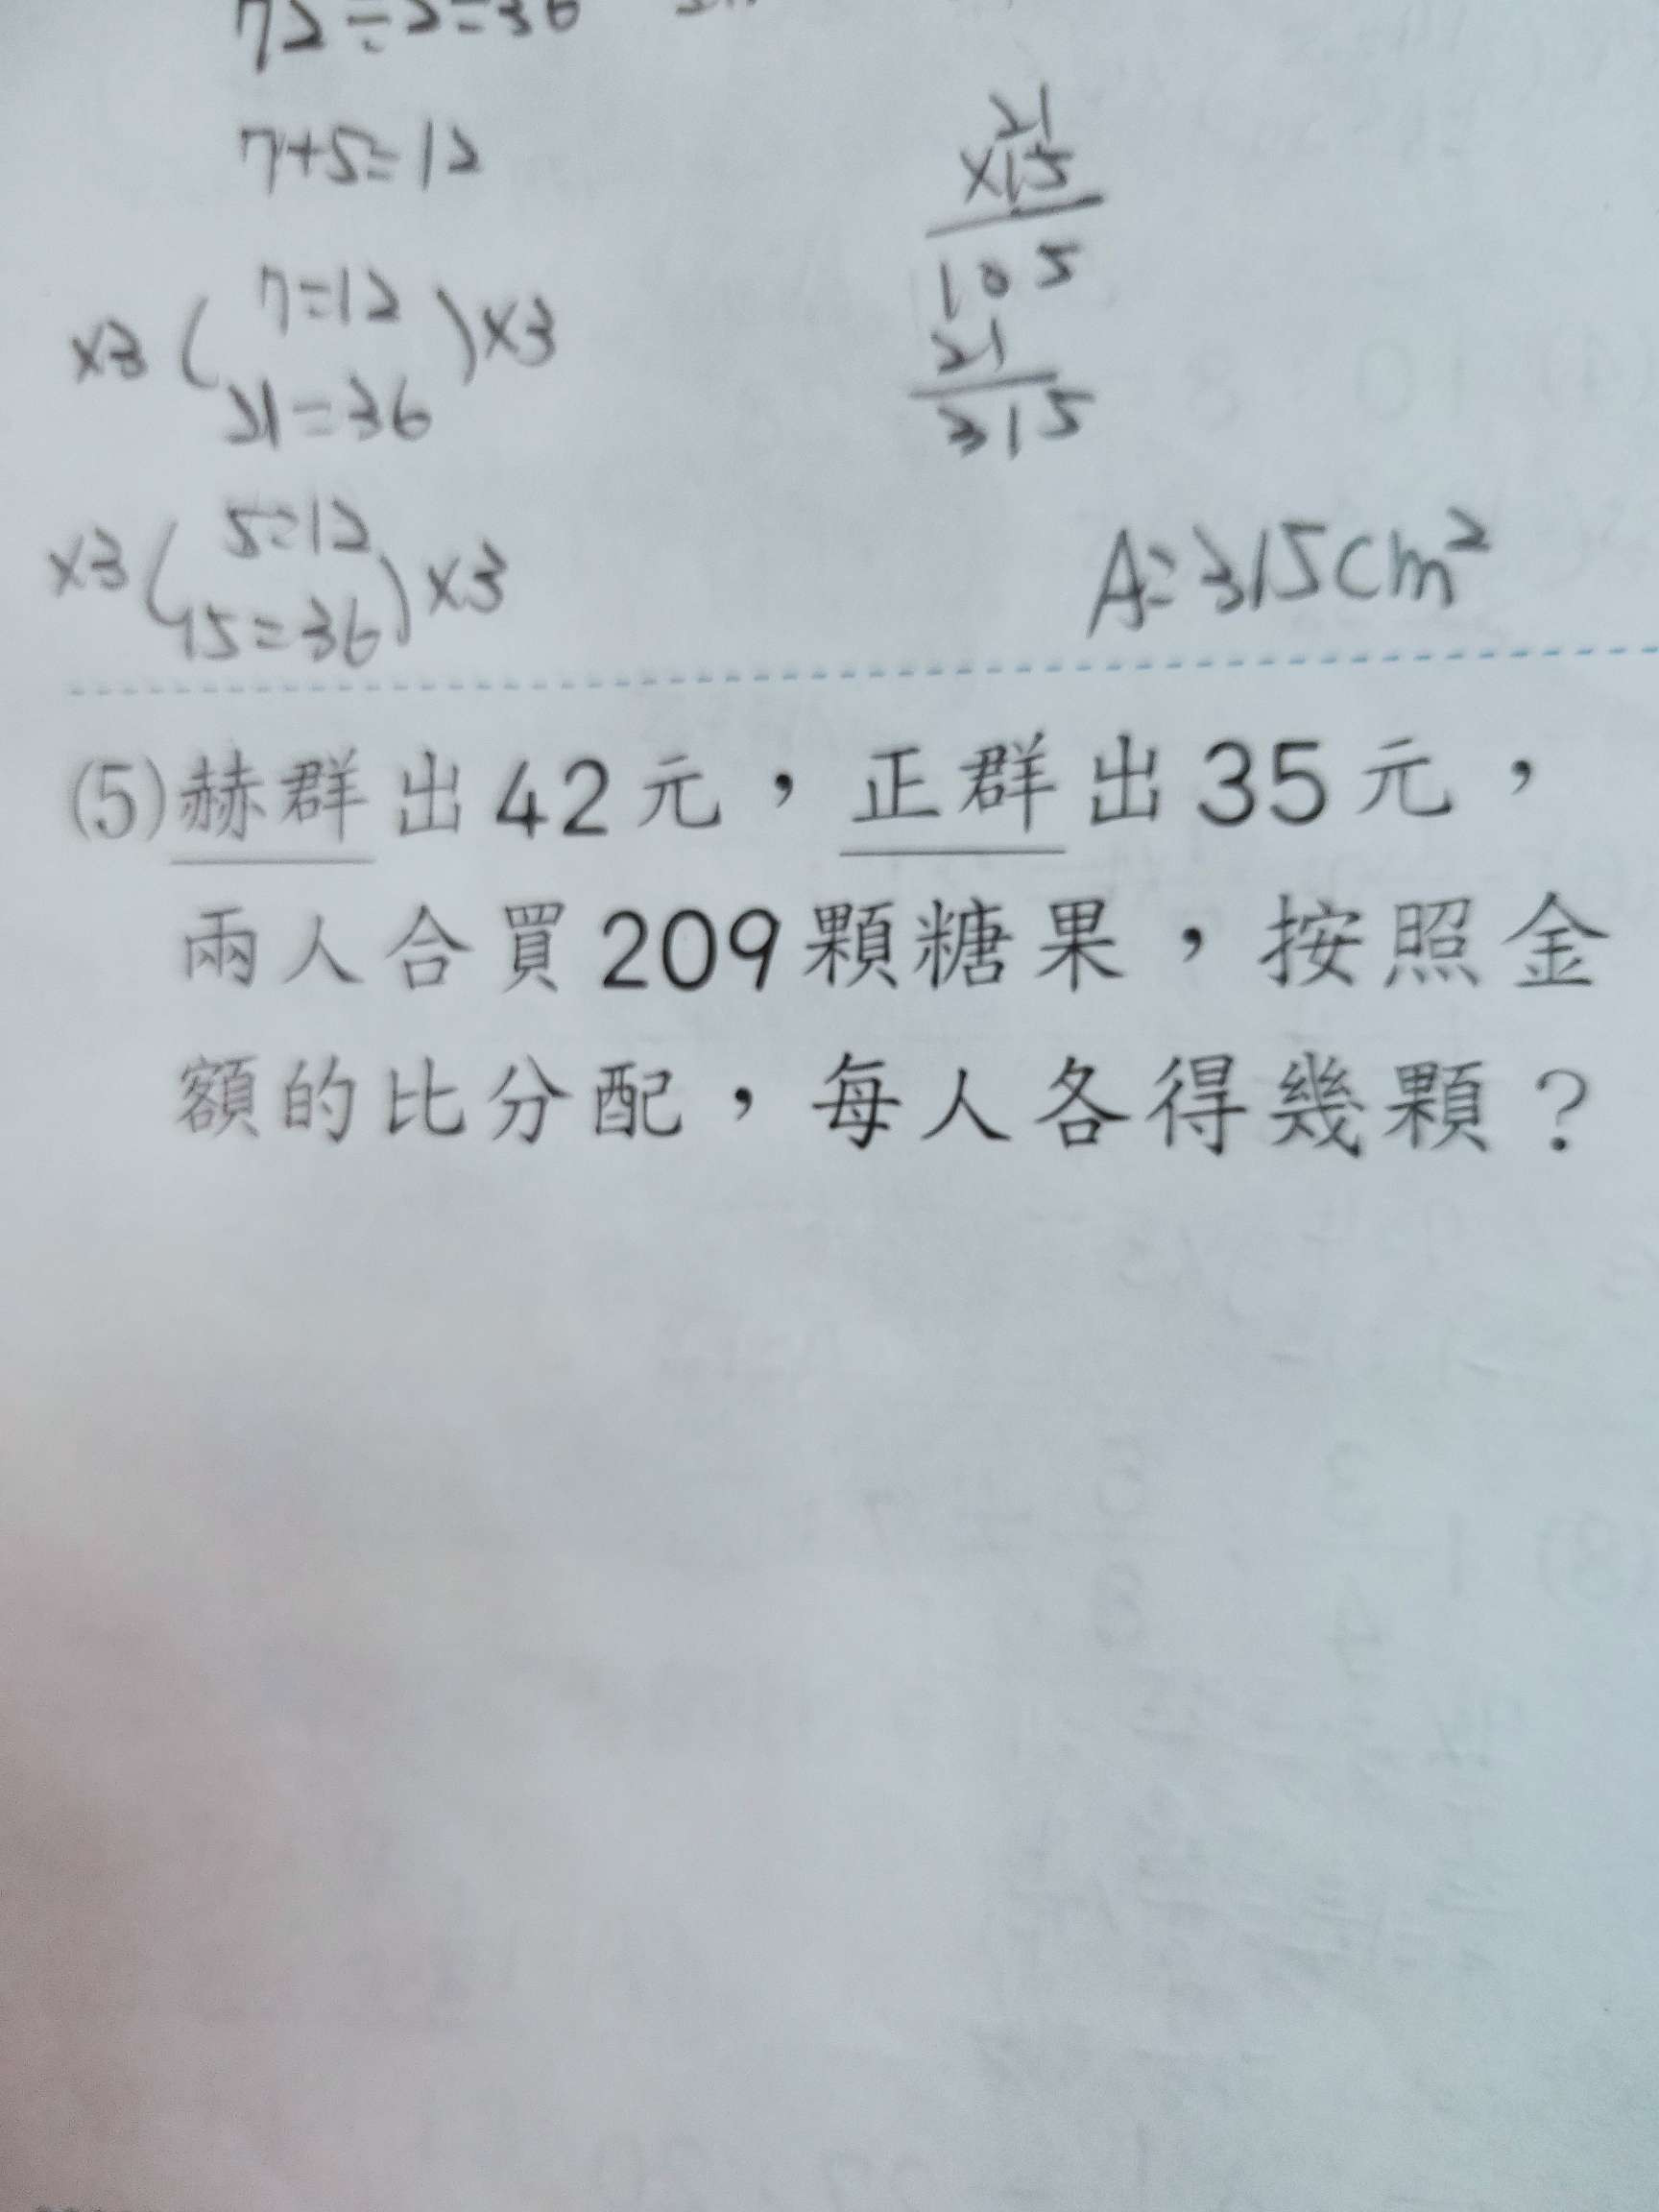 72÷2=36
7+5=12
7=12
×3( )×3
21=36
5=12
×3( )×3
15=36
21
×15
105
21
315
A=315cm²
(5)赫群出42元，正群出35元，
兩人合買209顆糖果，按照金
額的比分配，每人各得幾顆？